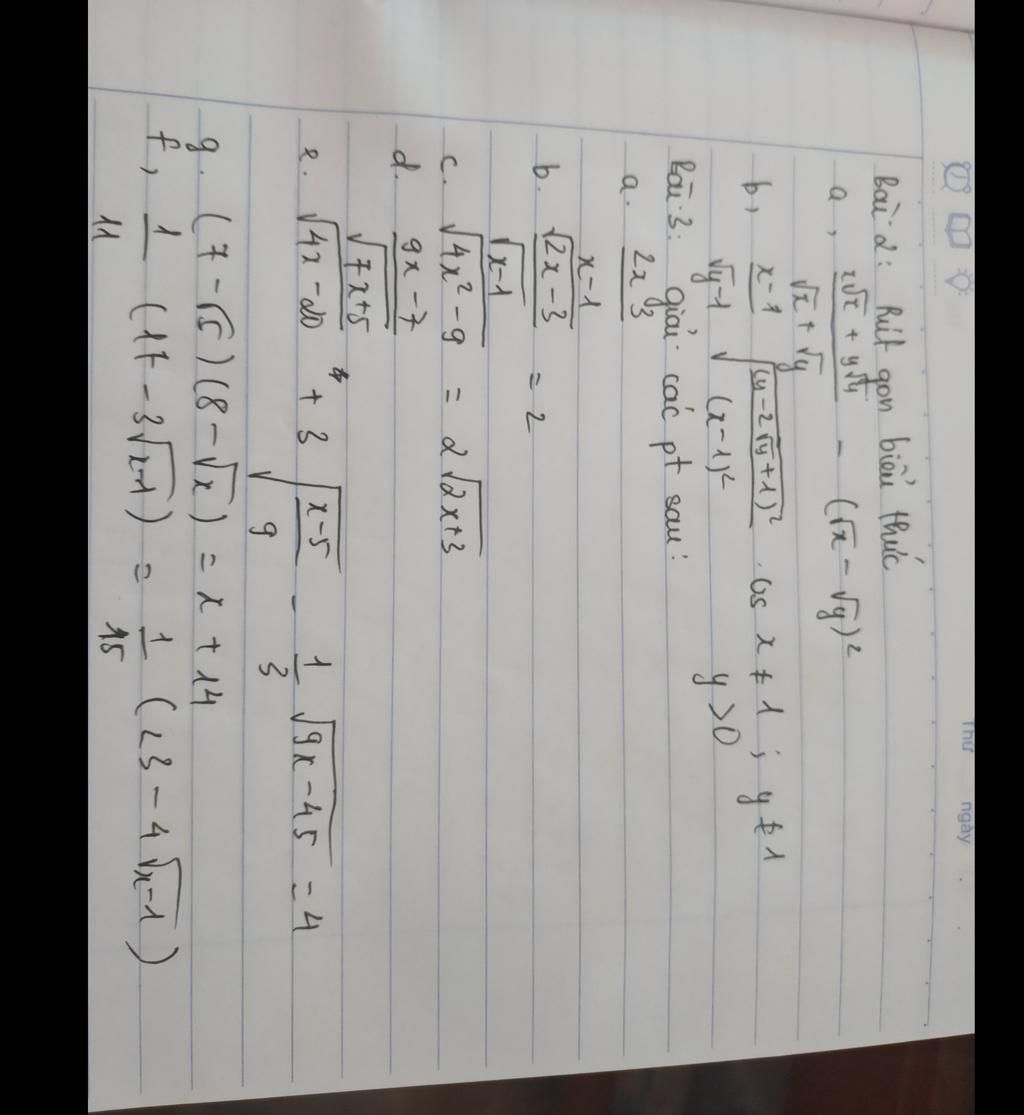 Thứ ngày
Bài 2: Rút gọn biểu thức
a, x√x + y√y / √x + √y − (√x − √y)²
b, x−1 / √y−1 √(y−2√y+1)² / (x−1)² x ≠ 1 ; y ≠ 1
y > 0
Bài 3: giải các pt sau:
a. 2x 3 / x−1
b. √2x−3 / √x−1 = 2
c. √4x²−9 = 2√2x+3
d. 9x−7 / √7x+5
e. √4x−20 + 3 √x−5 / 9 − 1/3 √9x−45 = 4
g. (7−√5)(8−√x) = x + 14
f, 1/11 (17 − 3√x−1) = 1/15 (23 − 4√x−1)